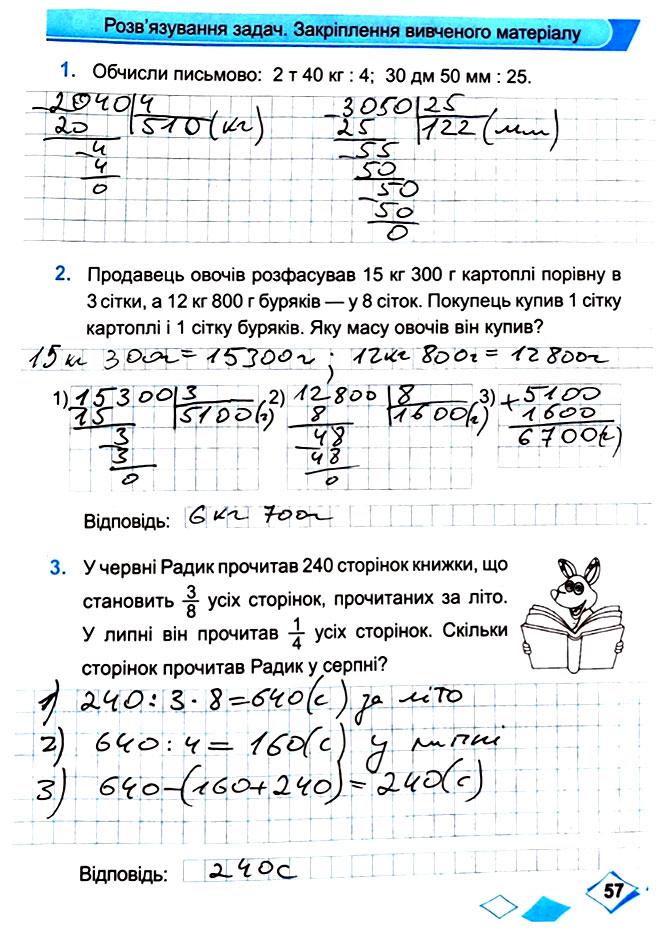 Розв'язування задач. Закріплення вивченого матеріалу
1. Обчисли письмово: 2 т 40 кг : 4; 30 дм 50 мм : 25.
2040 4 3050 25
20 510 (кг) 25 122 (мм)
4 55
4 50
0 50
50
0
2. Продавець овочів розфасував 15 кг 300 г картоплі порівну в
3 сітки, а 12 кг 800 г буряків — у 8 сіток. Покупець купив 1 сітку
картоплі і 1 сітку буряків. Яку масу овочів він купив?
15 кг 300г = 15300г ; 12кг 800г = 12800г
1) 15300 3 2) 12800 8 3) + 5100
15 5100 (г) 8 1600 (г) 1600
3 48 6700 (г)
3 48
0 0
Відповідь: 6 кг 700г
3. У червні Радик прочитав 240 сторінок книжки, що
становить 3/8 усіх сторінок, прочитаних за літо.
У липні він прочитав 1/4 усіх сторінок. Скільки
сторінок прочитав Радик у серпні?
1) 240 : 3 · 8 = 640 (с) за літо
2) 640 : 4 = 160 (с) у липні
3) 640 - (160 + 240) = 240 (с)
Відповідь: 240с
57